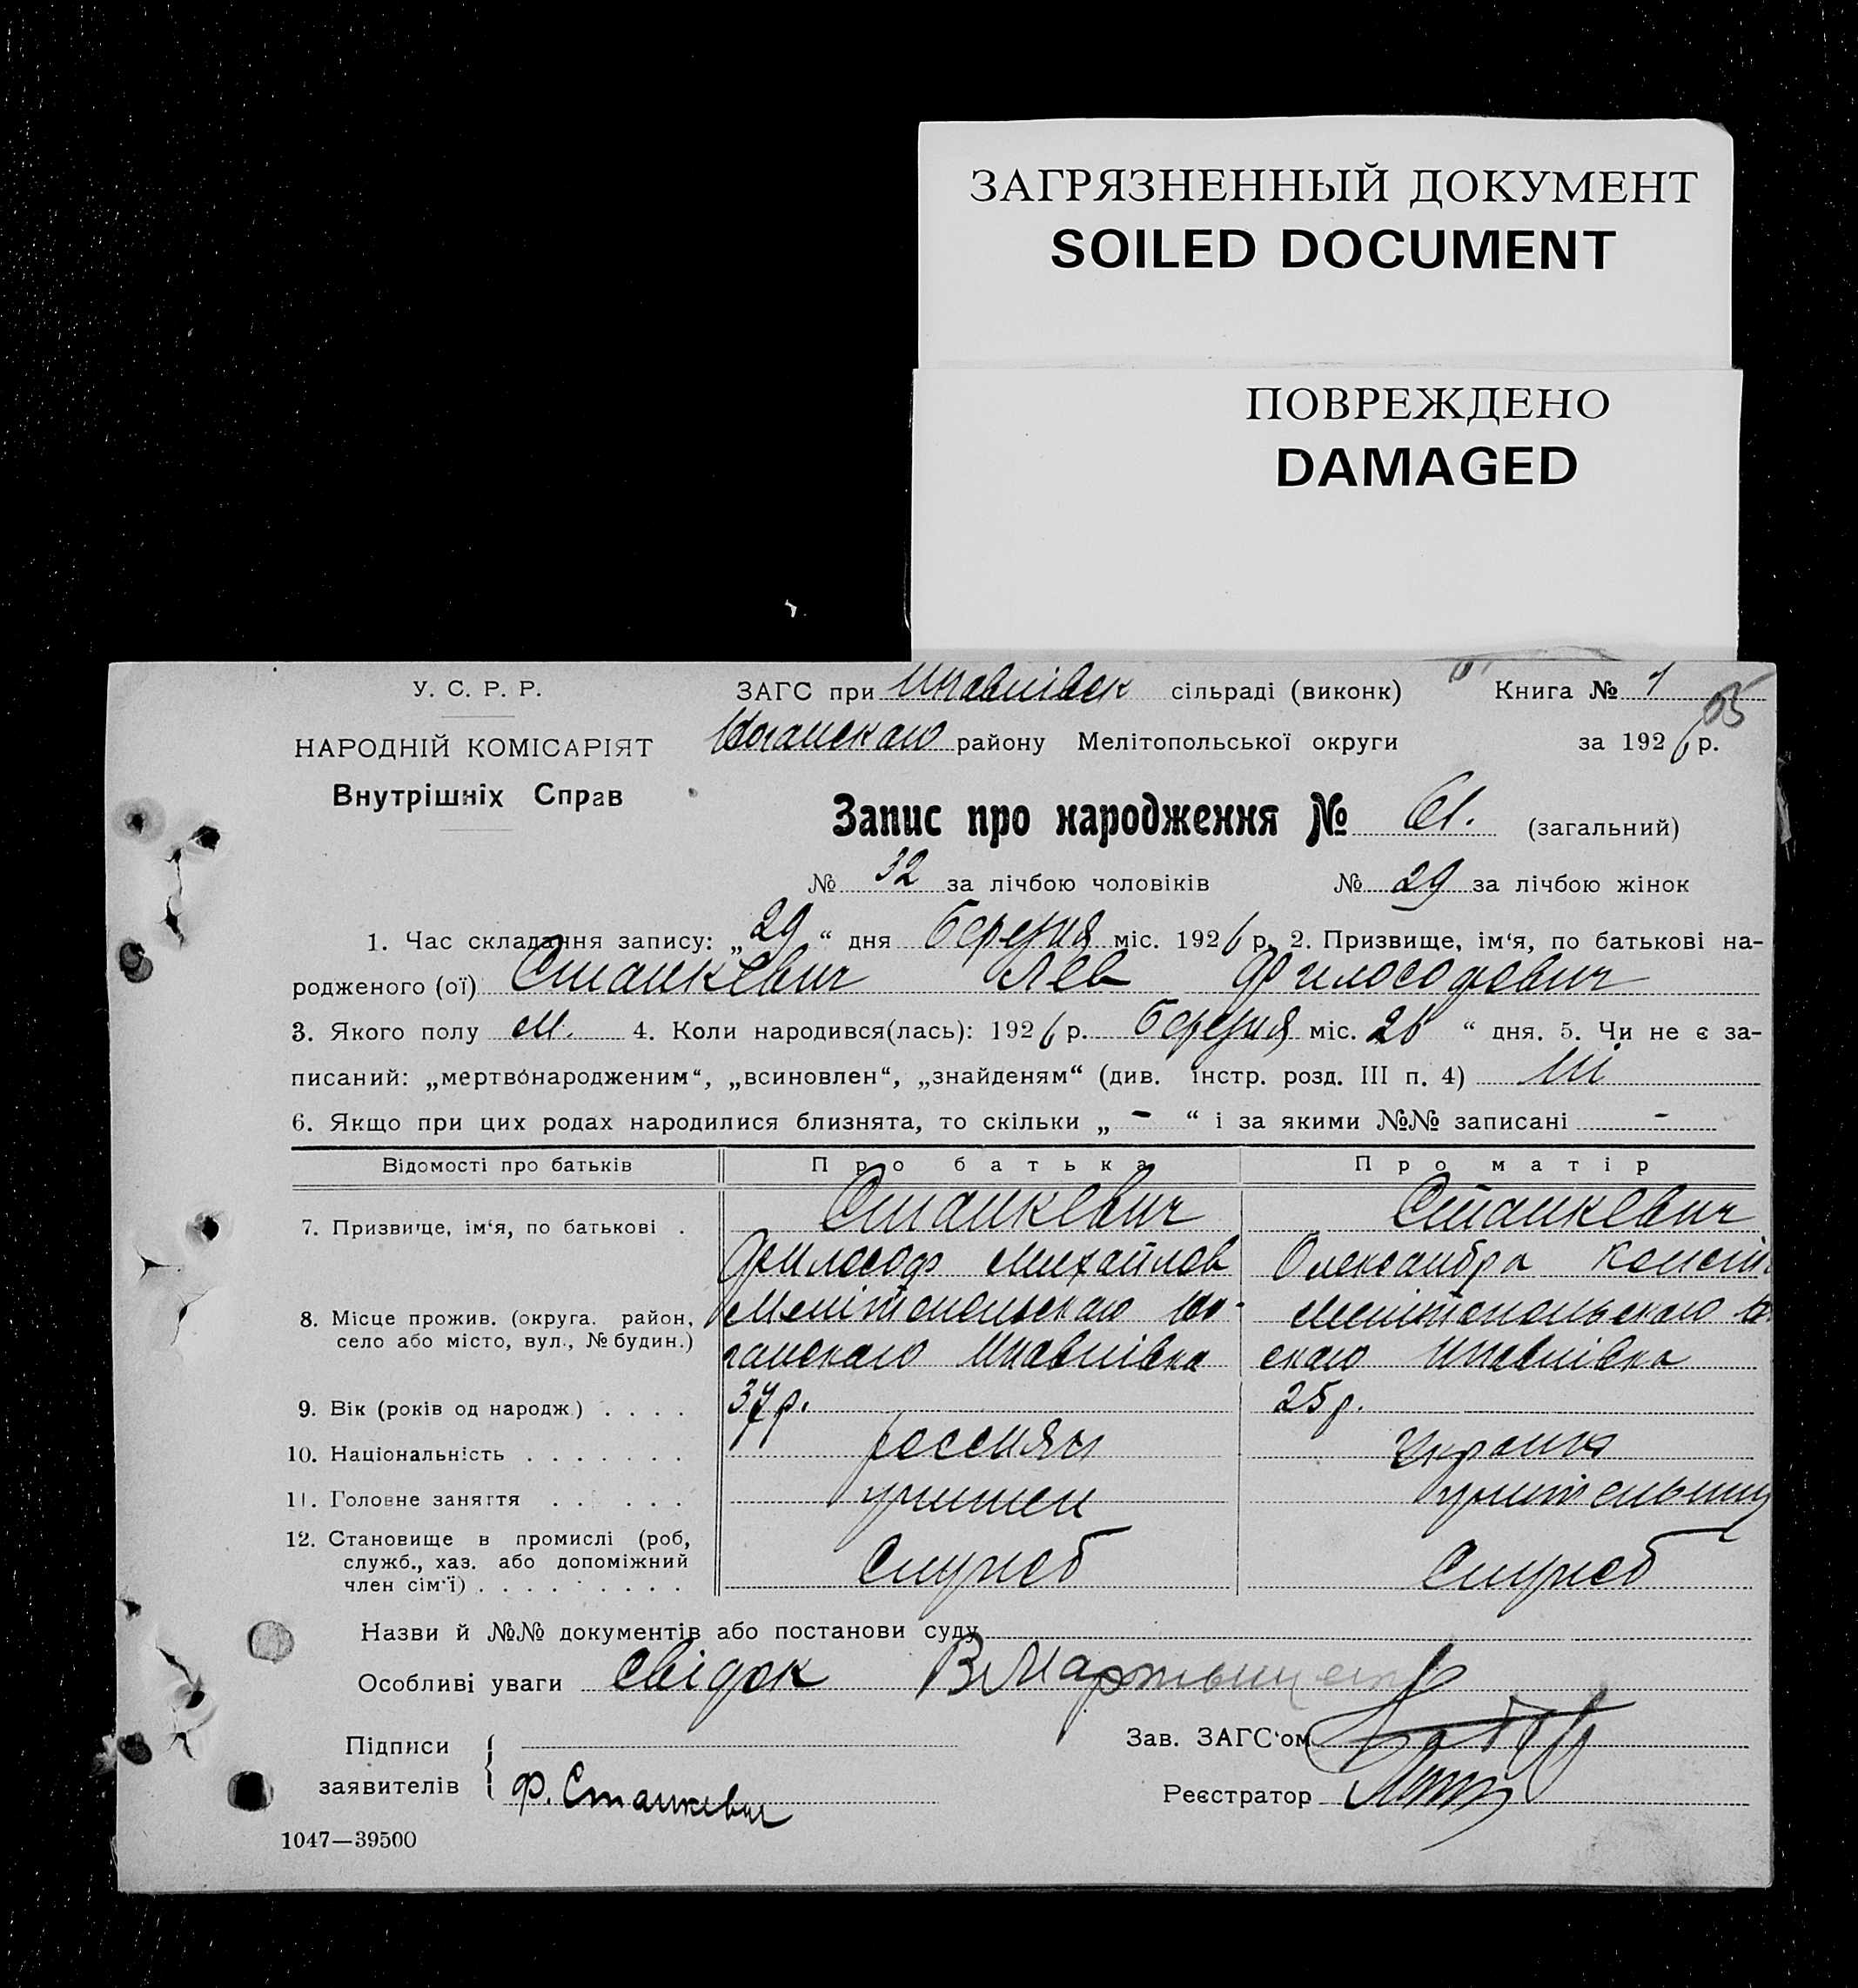 ЗАГРЯЗНЕННЫЙ ДОКУМЕНТ
SOILED DOCUMENT
ПОВРЕЖДЕНО
DAMAGED
У. С. Р. Р.
ЗАГС при сільраді (виконк) Книга № 1
НАРОДНІЙ КОМІСАРІЯТ
району Мелітопольської округи за 1926 р.
Внутрішніх Справ
Запис про народження № 61. (загальний)
№ 32 за лічбою чоловіків № 29 за лічбою жінок
1. Час складання запису: „29“ дня березня міс. 1926 р. 2. Призвище, ім‘я, по батькові на-
родженого (ої) Станкевич Лев Философович
3. Якого полу м. 4. Коли народився(лась): 1926 р. березня міс. “ дня. 5. Чи не є за-
писаний: „мертвонародженим“, „всиновлен“, „знайденям“ (див. інстр. розд. III п. 4) ні
6. Якщо при цих родах народилися близнята, то скільки „ - “ і за якими №№ записані -
Відомості про батьків Про батька Про матір
7. Призвище, ім‘я, по батькові . Станкевич Станкевич
Философ Михайлов Олександра Конст
8. Місце прожив. (округа. район, Мелітопольскаго Мелітопольскаго
село або місто, вул., № будин.)
9. Вік (років од народж) . . . . 37 р. 25 р.
10. Національність . . . . . . . россиян Україн
11. Головне заняття . . . . . . учител учительниц
12. Становище в промислі (роб,
служб., хаз. або допоміжний Служб Служб
член сім‘ї) . . . . . . . . .
Назви й №№ документів або постанови суду
Особливі уваги свідок
Підписи Зав. ЗАГС‘ом
заявителів Ф. Станкевич Реєстратор
1047—39500